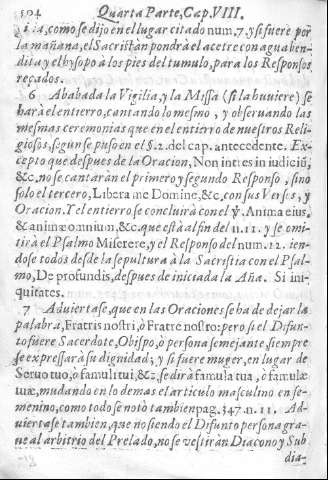 504 Quarta Parte, Cap. VIII.
como se dijo en el lugar citado num. 7. y si fuere por
la mañana, el Sacristan pondrà el acetre con agua ben-
dita y el hysopo à los pies del tumulo, para los Responsos
reçados.
6 Ababada la Vigilia, y la Missa (si la huuiere) se
harà el entierro, cantando lo mesmo, y obseruando las
mesmas ceremonias que en el entierro de nuestros Reli-
giosos, segun se puso en el §. 2. del cap. antecedente. Ex-
cepto que despues de la Oracion, Non intres in iudiciū,
&c. no se cantaràn el primero y segundo Responso, sino
solo el tercero, Libera me Domine, &c. con sus Verses, y
Oracion. Y el entierro se concluirà con el ℣. Anima eius,
& animæ omnium, &c. que està al fin del n. 11. y se omi-
tirà el Psalmo Miserere, y el Responso del num. 12. ien-
dose todos desde la sepultura à la Sacristia con el Psal-
mo, De profundis, despues de iniciada la Aña. Si ini-
quitates.
7 Aduiertase, que en las Oraciones se ha de dejar la
palabra, Fratris nostri, ò Fratre nostro: pero si el Difun-
to fuere Sacerdote, Obispo, ò persona semejante, siempre
se expressarà su dignidad; y si fuere muger, en lugar de
Seruo tuo, ò famuli tui, &c. se dirà famula tua, ò famulæ
tuæ, mudando en lo demas el articulo masculino en fe-
menino, como todo se notò tambien pag. 347. n. 11. Ad-
uiertase tambien, que no siendo el Difunto persona gra-
ue al arbitrio del Prelado, no se vestiràn Diacono y Sub
dia-